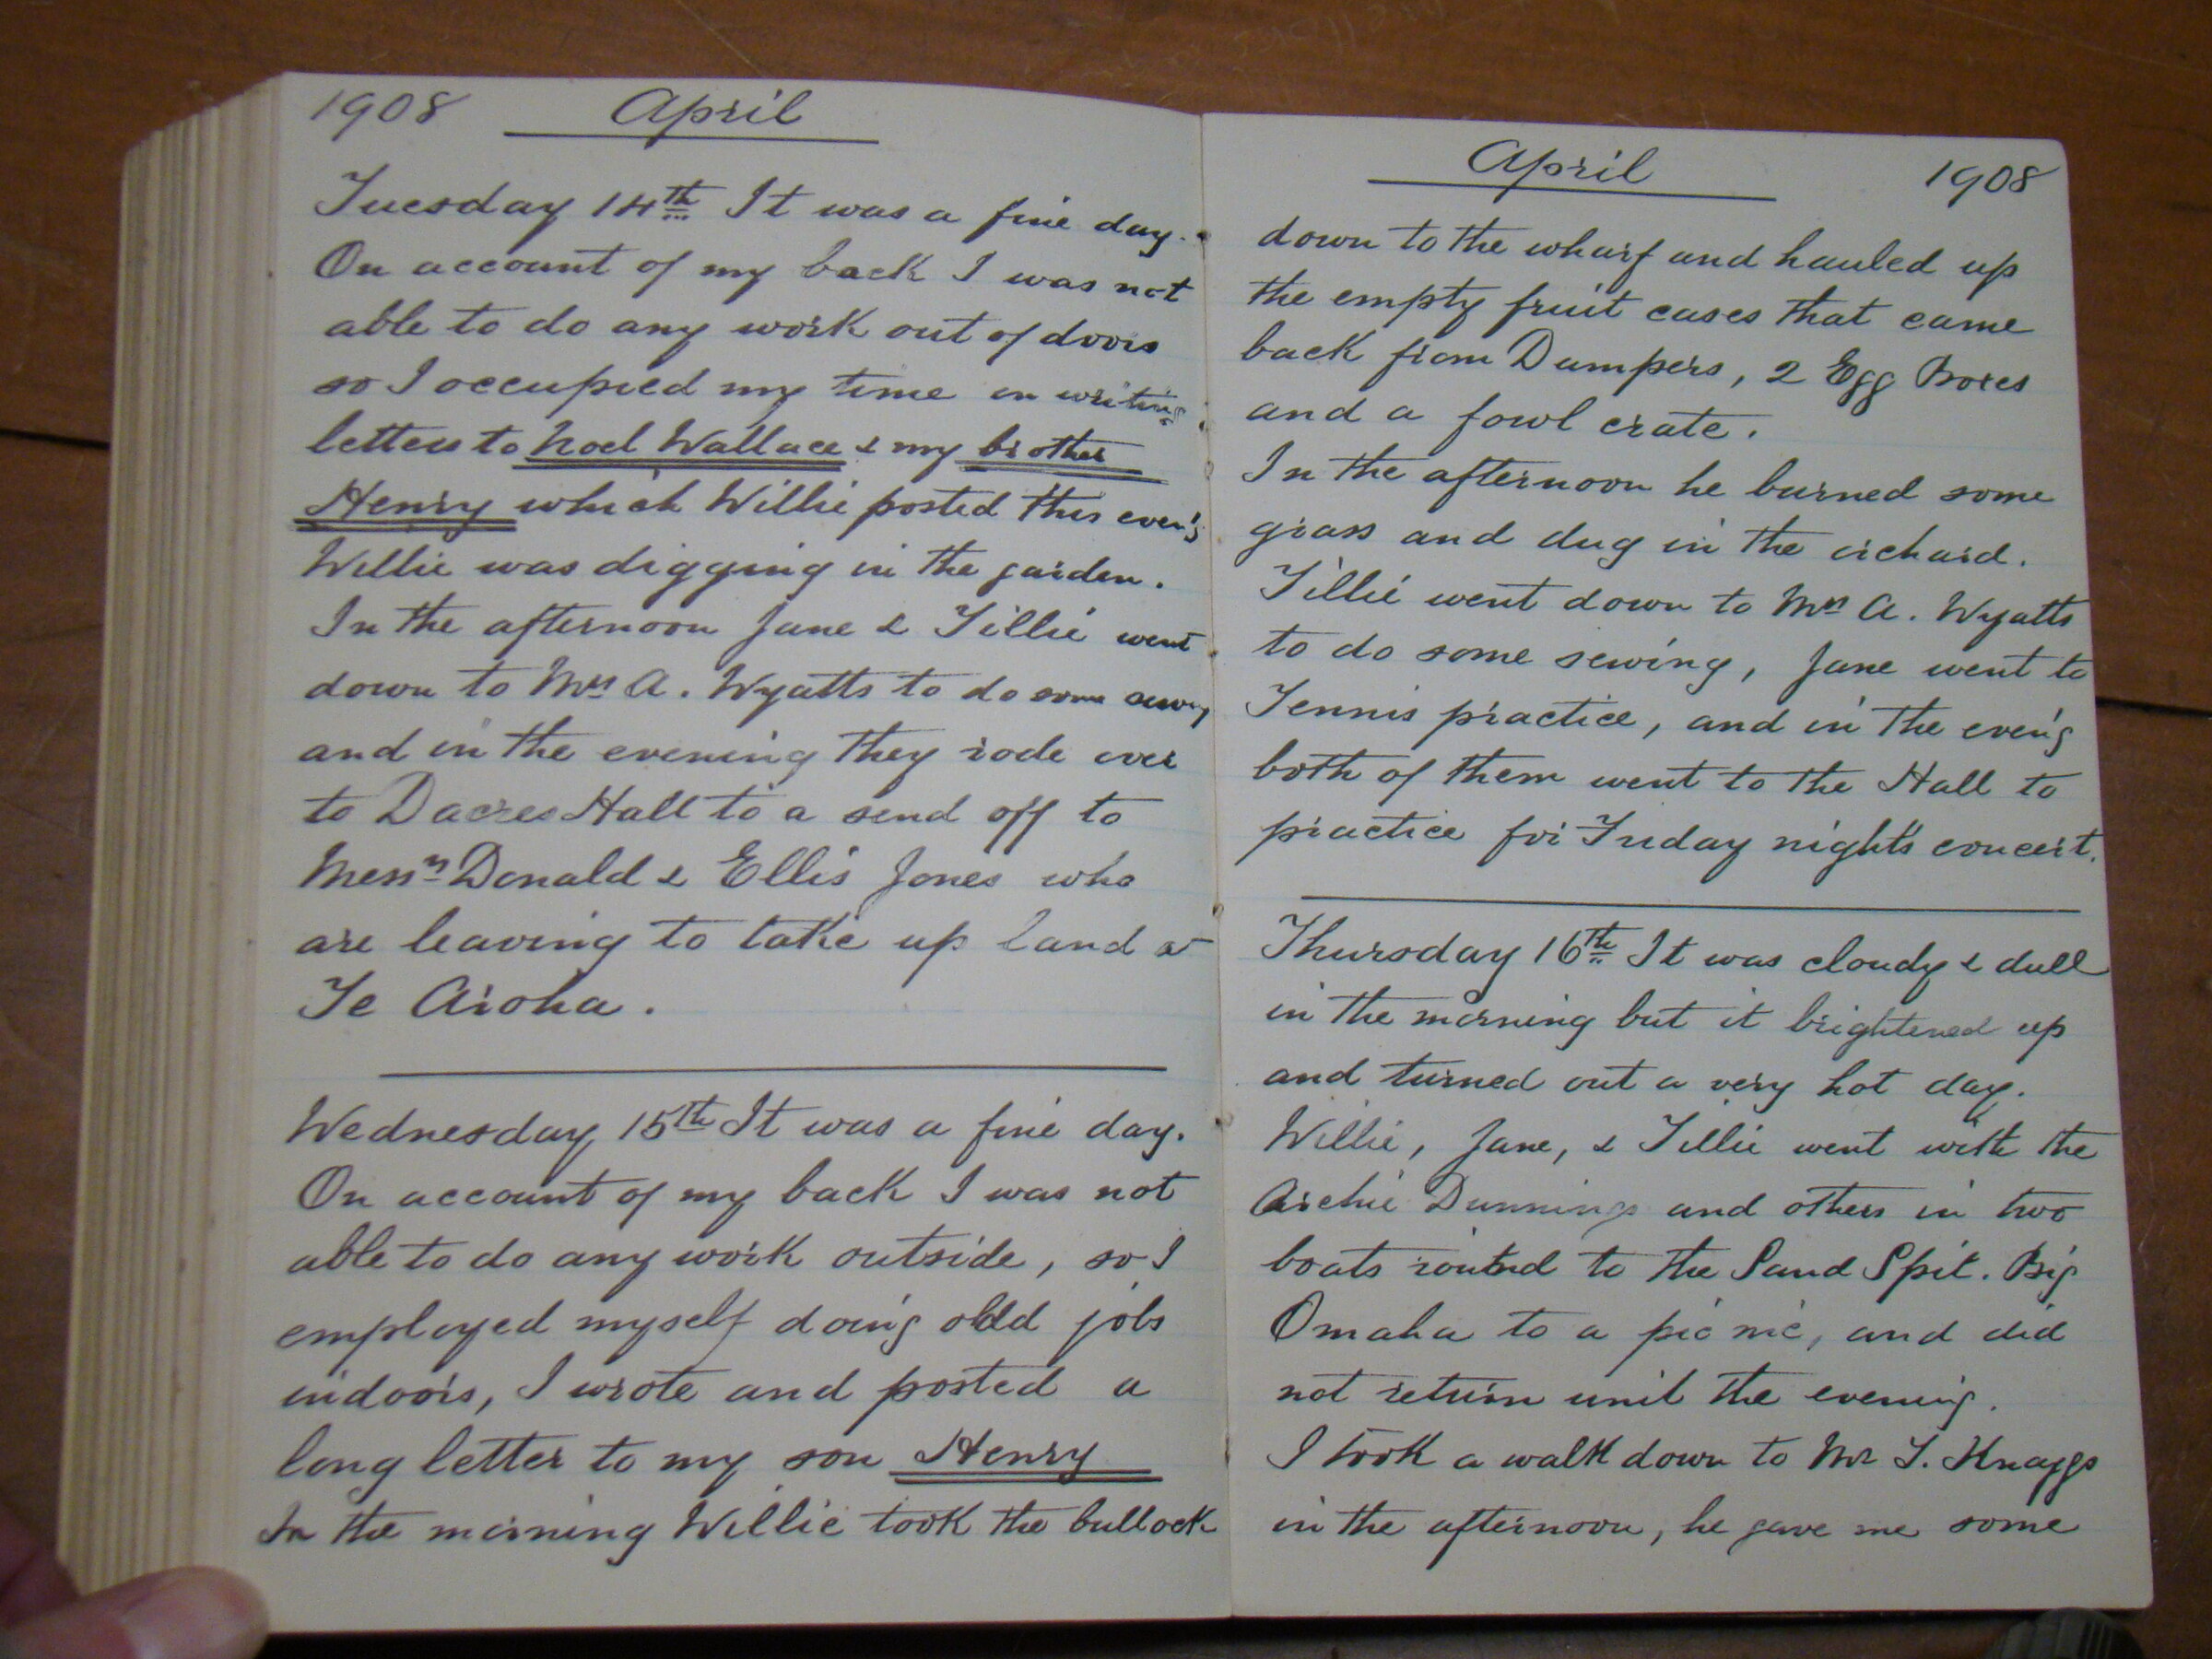 1908 April
Tuesday 14th It was a fine day.
On account of my back I was not
able to do any work out of doors
so I occupied my time in writing
letters to Noel Wallace & my brother
Henry which Willie posted this even'g
Willie was digging in the garden.
In the afternoon Jane & Tillie went
down to Mrs A. Wyatts to do some sewing
and in the evening they rode over
to Dacres Hall to a send off to
Messrs Donald & Ellis Jones who
are leaving to take up land at
Te Aroha.
Wednesday 15th It was a fine day.
On account of my back I was not
able to do any work outside, so I
employed myself doing odd jobs
indoors, I wrote and posted a
long letter to my son Henry
In the morning Willie took the bullock
April 1908
down to the wharf and hauled up
the empty fruit cases that came
back from Dumpers, 2 Egg Boxes
and a fowl crate.
In the afternoon he burned some
grass and dug in the orchard.
Tillie went down to Mrs A. Wyatts
to do some sewing, Jane went to
Tennis practice, and in the even'g
both of them went to the Hall to
practice for Friday nights concert.
Thursday 16th It was cloudy & dull
in the morning but it brightened up
and turned out a very hot day.
Willie, Jane, & Tillie went with the
Archie Dunnings and others in two
boats round to the Sand Spit. Big
Omaha to a pic nic, and did
not return until the evening.
I took a walk down to Mr T. Knaggs
in the afternoon, he gave me some